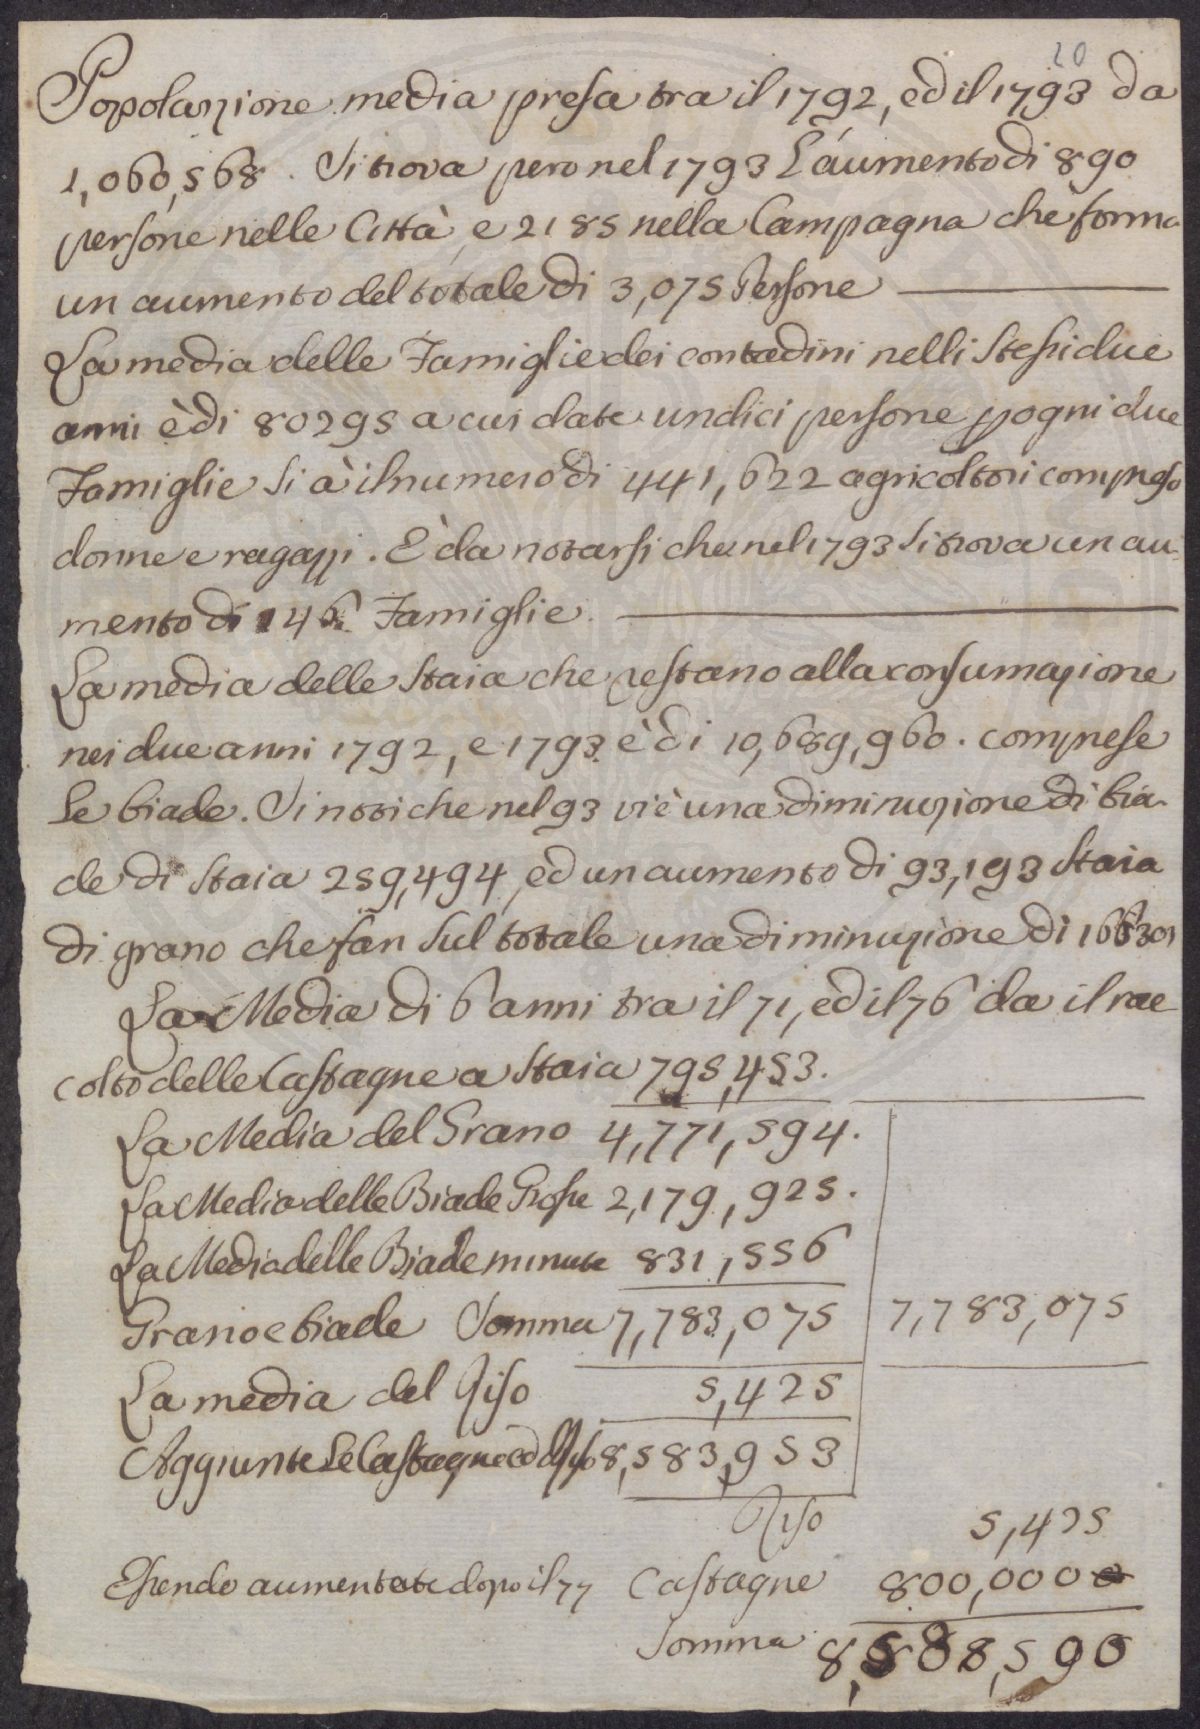 20
Popolazione media presa tra il 1792, ed il 1793 da
1,060,568. Si trova pero nel 1793 L'aumento di 890
persone nelle Città, e 2185 nella Campagna che forma
un aumento del totale di 3,075 Persone
La media delle Famiglie dei contadini nelli stessi due
anni è di 80295 a cui date undici persone p ogni due
Famiglie si à il numero di 441,622 agricoltori compreso
donne e ragazzi. È da notarsi che nel 1793 si trova un au-
mento di 146 Famiglie.
La media delle Staia che restano alla consumazione
nei due anni 1792, e 1793 è di 10,689,960. comprese
Le biade. Si noti che nel 93 vi è una diminuzione di bia-
de di Staia 259,494, ed un aumento di 93,193 Staia
di grano che fan sul totale una diminuzione di 166301
La Media di 6 anni tra il 71, ed il 76 da il rac
colto delle Castagne a Staia 795,453.
La Media del Grano 4,771,594.
La Media delle Biade Grosse 2,179,925.
La Media delle Biade minute 831,556
Grano e biade Somma 7,783,075 7,783,075
La media del Riso 5,425
Aggiunte Le Castagne ed Riso 8,583,953
Riso 5,425
Essendo aumentate dopo il 77 Castagne 800,000
Somma 8,588,500